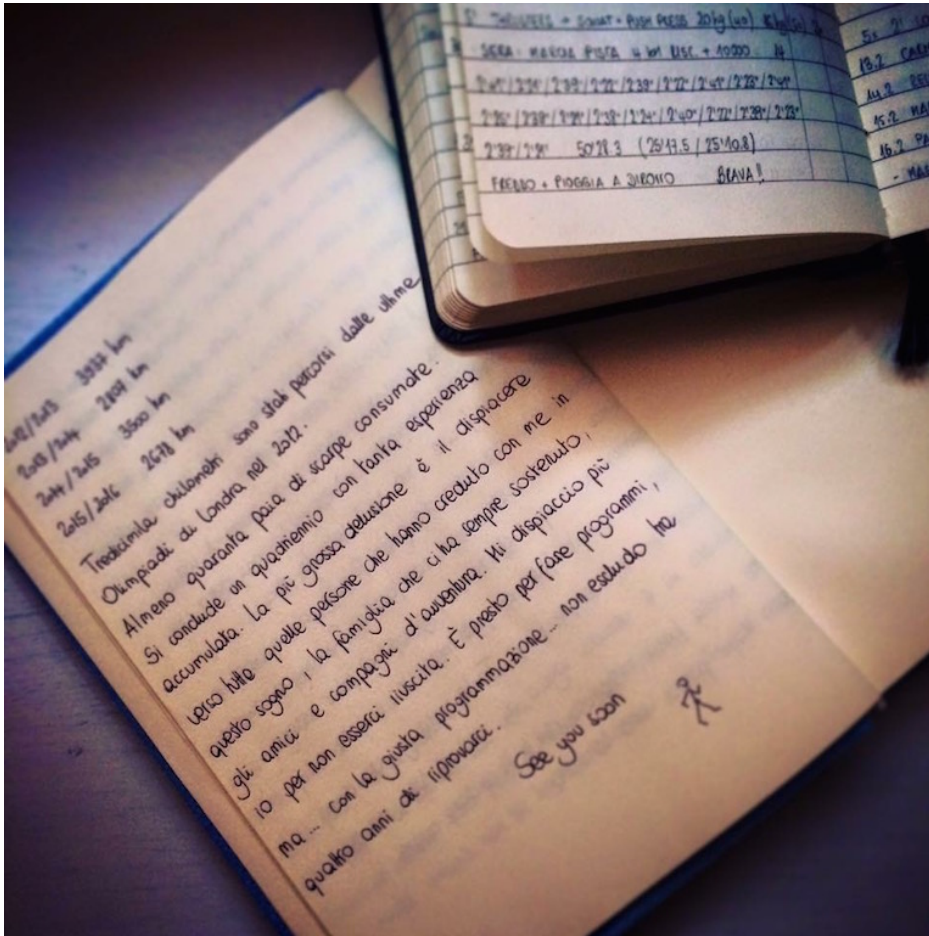 5' THRUSTERS + SQUAT + PUSH PRESS 20kg (40)
SERA: MARCIA PISTA 4 km RISC. + 10000 14
2'39"/2'22"/2'41"/2'23"/2'41"
2'40"/2'22"/2'39"/2'23"
50'28.3 (25'17.5 / 25'10.8)
FREDDO + PIOGGIA A DIROTTO BRAVA!!
5x 2'
13.2
14.2
15.2
16.2
2012/2013 3937 km
2013/2014 km
2014/2015 3500 km
2015/2016 2673 km
Tredicimila chilometri sono stati percorsi dalle ultime
Olimpiadi di Londra nel 2012.
Almeno quaranta paia di scarpe consumate.
Si conclude un quadriennio con tanta esperienza
accumulata. La più grossa delusione è il dispiacere
verso tutte quelle persone che hanno creduto con me in
questo sogno, la famiglia che ci ha sempre sostenuto,
gli amici e compagni d'avventura. Mi dispiaccio più
io per non esserci riuscita. È presto per fare programmi,
ma... con la giusta programmazione... non escludo tra
quattro anni di riprovarci.
See you soon